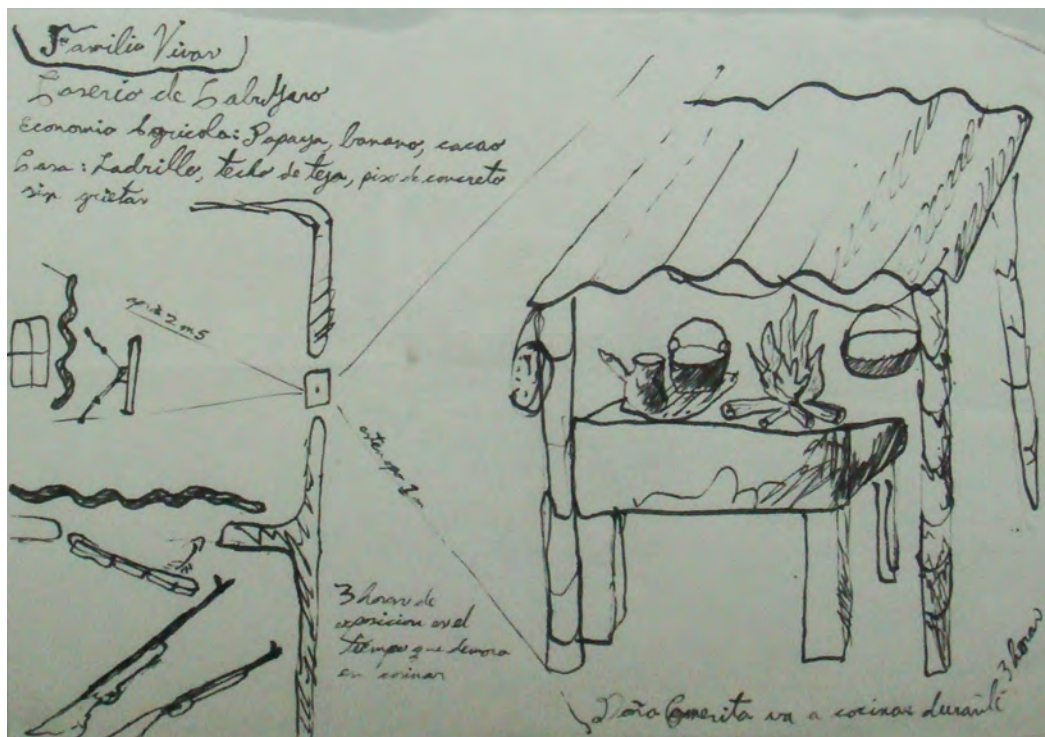 Familia Vivar
Caserio de
Economia Agricola: Papaya, banano, cacao
Casa: Ladrillo, techo de teja, piso de concreto
sin grietas
2 m 5
3 horas de
exposicion es el
tiempo que demora
en cocinar
Doña va a cocinar durante 3 horas